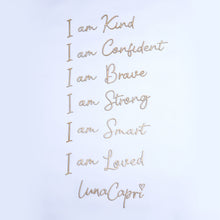 I am Kind
I am Confident
I am Brave
I am Strong
I am Smart
I am Loved
LunaCapri